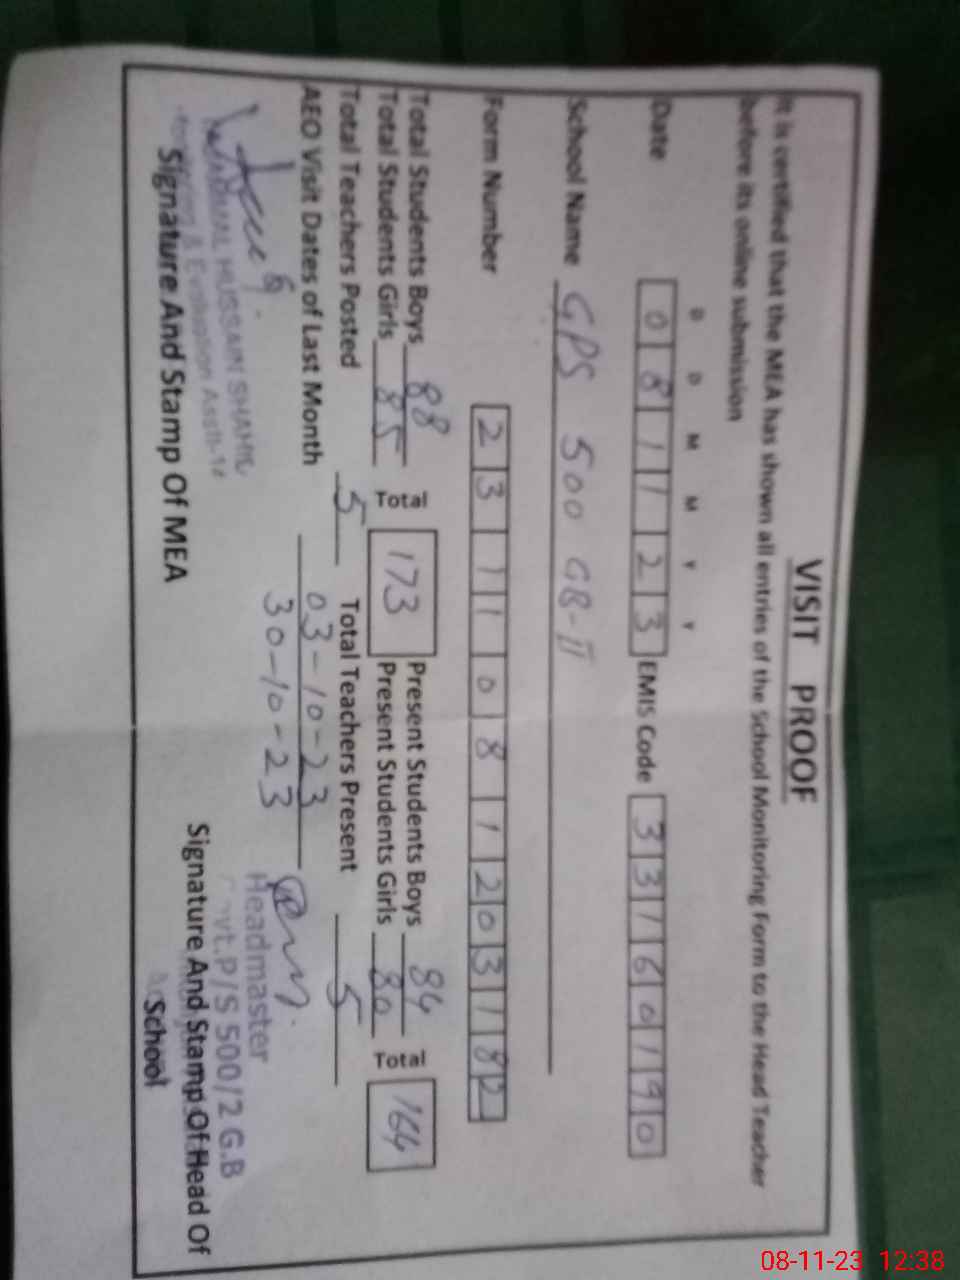 VISIT PROOF
It is certified that the MEA has shown all entries of the School Monitoring Form to the Head Teacher
before its online submission
D D M M Y Y
Date 0 8 1 1 2 3 EMIS Code 3 3 1 6 0 1 9 0
School Name GPS 500 GB-II
Form Number 2 3 1 1 0 8 1 2 0 3 1 8 2
Total Students Boys 88 Total 173 Present Students Boys 84 Total 164
Total Students Girls 85 Present Students Girls 80
Total Teachers Posted 5 Total Teachers Present 5
AEO Visit Dates of Last Month 03-10-23
30-10-23
HUSSAIN SHAHID
& Evaluation Asstt-
Signature And Stamp Of MEA
Headmaster
Govt.P/S 500/2 G.B
Signature And Stamp Of Head Of
School
08-11-23 12:38